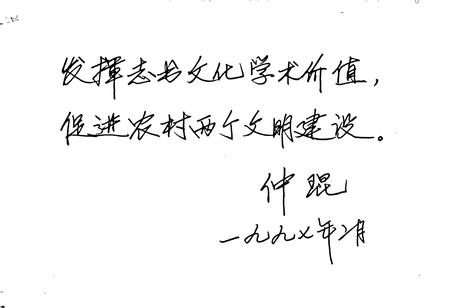 发挥志书文化学术价值，
促进农村两个文明建设。
仲琨
一九九七年二月